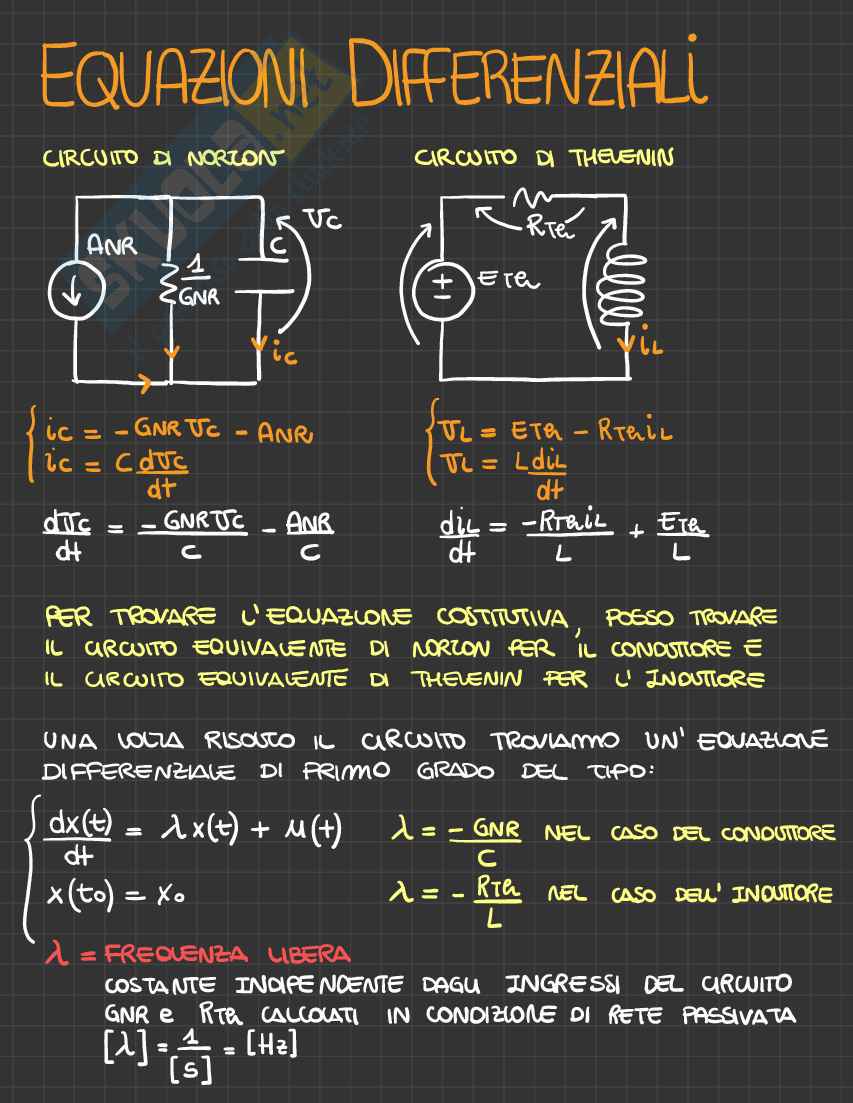 EQUAZIONI DIFFERENZIALI
CIRCUITO DI NORTON
CIRCUITO DI THEVENIN
ANR
1/GNR
C
vC
iC
ETh
RTh
iL
iC = -GNR vC - ANR
iC = C dvC/dt
vL = ETh - RTh iL
vL = L diL/dt
dvC/dt = -GNR vC/C - ANR/C
diL/dt = -RTh iL/L + ETh/L
PER TROVARE L'EQUAZIONE COSTITUTIVA, POSSO TROVARE
IL CIRCUITO EQUIVALENTE DI NORTON PER IL CONDUTTORE E
IL CIRCUITO EQUIVALENTE DI THEVENIN PER L'INDUTTORE
UNA VOLTA RISOLTO IL CIRCUITO TROVIAMO UN'EQUAZIONE
DIFFERENZIALE DI PRIMO GRADO DEL TIPO:
dx(t)/dt = λx(t) + μ(t)
λ = -GNR/C NEL CASO DEL CONDUTTORE
x(t0) = x0
λ = -RTh/L NEL CASO DELL'INDUTTORE
λ = FREQUENZA LIBERA
COSTANTE INDIPENDENTE DAGLI INGRESSI DEL CIRCUITO
GNR e RTh CALCOLATI IN CONDIZIONE DI RETE PASSIVATA
[λ] = 1/[S] = [Hz]
SKUOLA.net